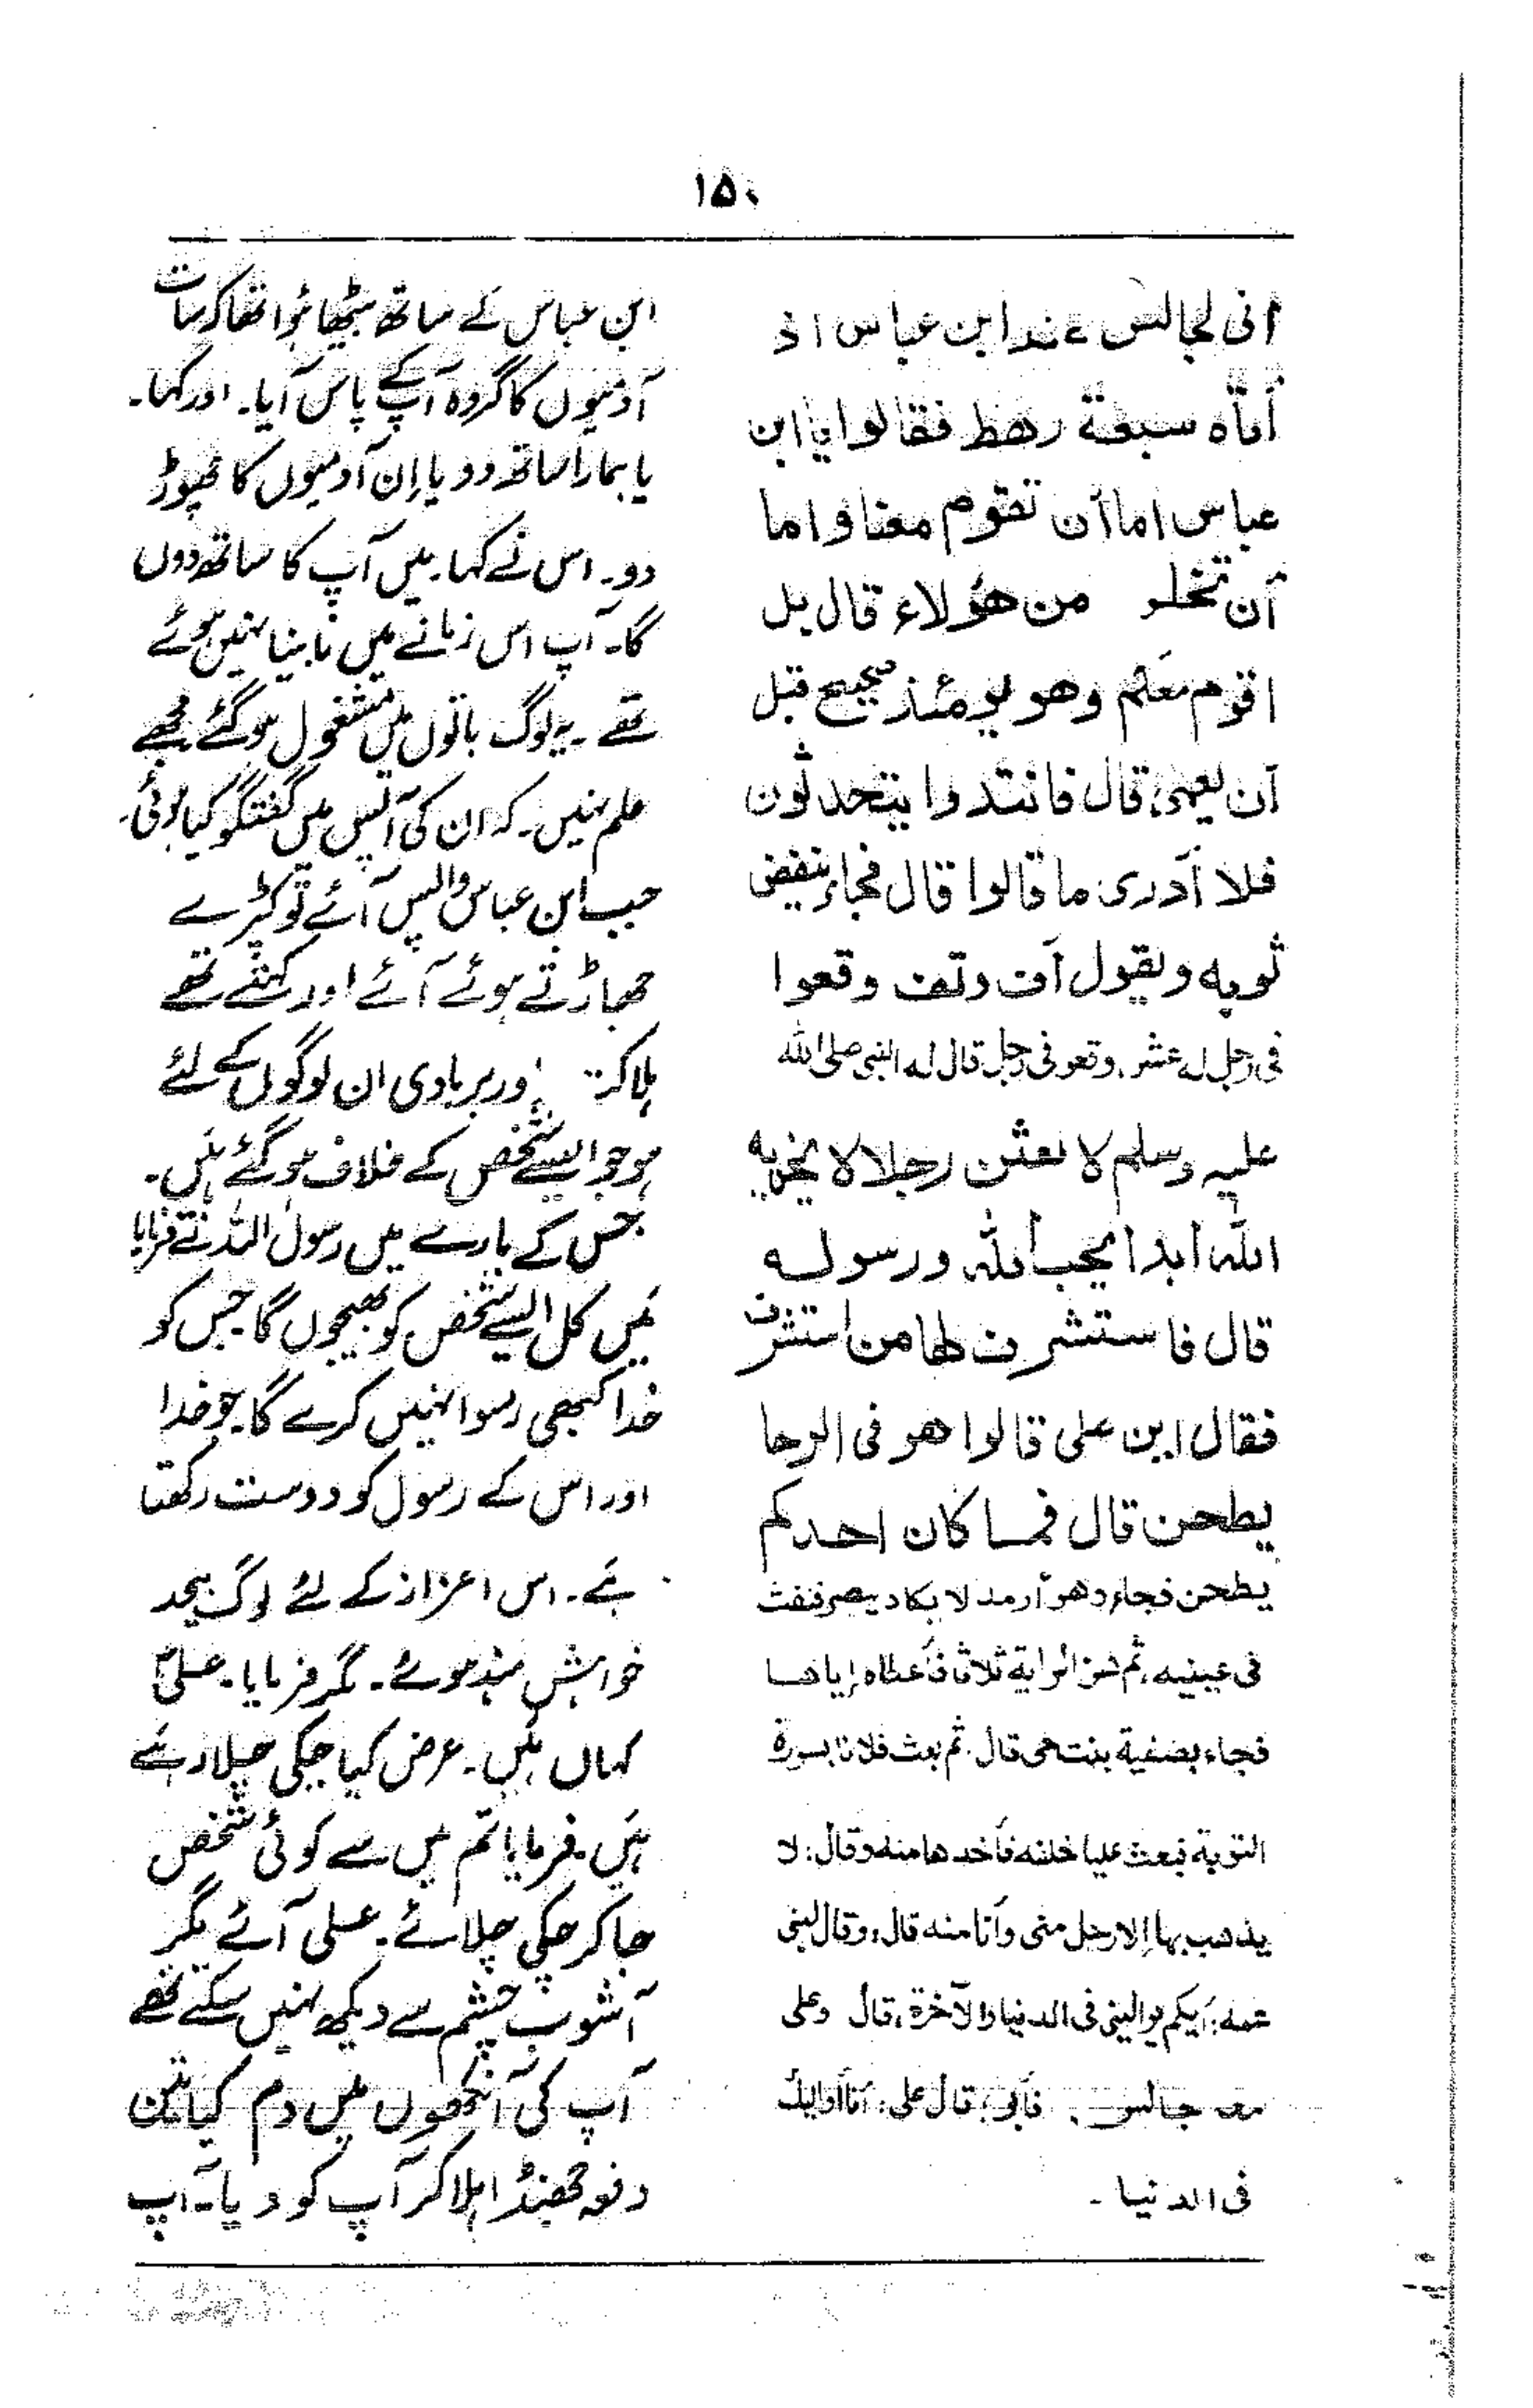 ۱۵۰
أنى لجالس عند ابن عباس اذ
أتاه سبعة رهط فقالوا يا ابن
عباس اما أن تقوم معنا و اما
أن تخلو من هؤلاء قال بل
اقوم معكم وهو يومئذ صحيح قبل
أن يعمى، قال فانتدوا يتحدثون
فلا أدرى ما قالوا قال فجاء ينفض
ثوبه ويقول أف وتف وقعوا
فى رجل له عشر، وقعو فى رجل قال له النبى صلى الله
عليه وسلم لا بعثن رجلا لا يخزيه
الله أبدا يحب الله ورسوله
قال فاستشرف لها من استشرف
فقال اين على قالوا هو فى الرحا
يطحن قال فما كان احدكم
يطحن فجاء وهو أرمد لا يكاد يبصر فنفث
فى عينيه، ثم هز الراية ثلاثا فأعطاه إياها
فجاء بصفية بنت حى قال. ثم بعث فلانا بسورة
التوبة فبعث عليا خلفه فأخدها منه وقال: لا
يذهب بها إلا رجل منى وأنا منه قال، وقال لبنى
عمه: أيكم يوالينى فى الدنيا والآخرة، قال وعلى
معه جالس. فأبو، قال على: أنا أواليك
فى الدنيا۔
ابن عباس کے ساتھ بیٹھا ہوا تھا کہ سات
آدمیوں کا گروہ آپ کے پاس آیا۔ اور کہا۔
یا ہمارا ساتھ دو یا اِن آدمیوں کا چھوڑ
دو۔ اس نے کہا۔ میں آپ کا ساتھ دوں
گا۔ آپ اس زمانے میں نابینا نہیں ہوئے
تھے۔ یہ لوگ باتوں میں مشغول ہو گئے مجھے
علم نہیں۔ کہ ان کی آپس میں گفتگو کیا ہوئی۔
جب ابن عباس واپس آئے تو کپڑے
جھاڑتے ہوئے آئے اور کہتے تھے
ہلاکت اور بربادی ان لوگوں کے لئے
ہو جو ایسے شخص کے خلاف ہو گئے ہیں۔
جس کے بارے میں رسول اللہ نے فرمایا
میں کل ایسے شخص کو بھیجوں گا جس کو
خدا کبھی رسوا نہیں کرے گا۔ جو خدا
اور اس کے رسول کو دوست رکھتا
ہے۔ اس اعزاز کے لئے لوگ بیحد
خواہش مند ہوئے۔ مگر فرمایا۔ علیؑ
کہاں ہیں۔ عرض کیا چکی چلا رہے
ہیں۔ فرمایا تم میں سے کوئی شخص
جا کر چکی چلائے۔ علی آئے مگر
آشوب چشم سے دیکھ نہیں سکتے تھے
آپ کی آنکھوں میں دم کیا تین
دفعہ جھنڈا ہلا کر آپ کو دیا۔ آپ